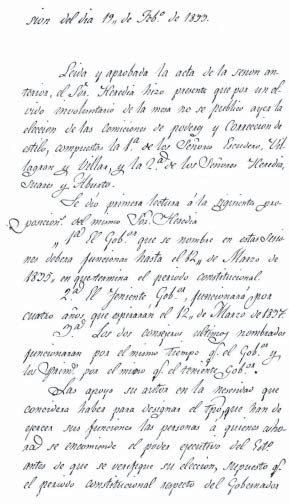 sion del dia 19,, de Feb.o de 1833.
Leida y aprobada la acta de la sesion an-
terior, el Sor. Heredia hizo presente que por un ol
vido involuntario de la mesa no se publicó ayer la
eleccion de las comiciones de poderes y Correccion de
estilo, compuestas la 1.a de los Señores Escudero, Vi-
llagran y Villar, y la 2.a de los Señores Heredia,
Suares y
Se dió primera lectura á la siguiente pro-
posicion. del mismo Sor. Heredia
,, 1.a El Gob.or que se nombre en estas sesio
nes debera funcionar hasta el 12,, de Marzo de
1835,, en que termina el periodo constitucional.
2.a El Teniente Gob.or, funcionará por
cuatro años, que espirarán el 12,, de Marzo de 1837.
3.a Los dos consejeros ultimos nombrados
funcionaran por el mismo tiempo q.e el Gob.or y
los prim.os por el mismo q.e el teniente Gob.or
Las apoyo su autor en la necesidad que
considera haber para designar el tpo, que han de
egercer sus funciones las personas á quienes aho-
ra se encomiende el poder egecutivo del Est.o
antes de que se verifique su eleccion, supuesto q.e
el periodo constitucional respecto del Gobernador